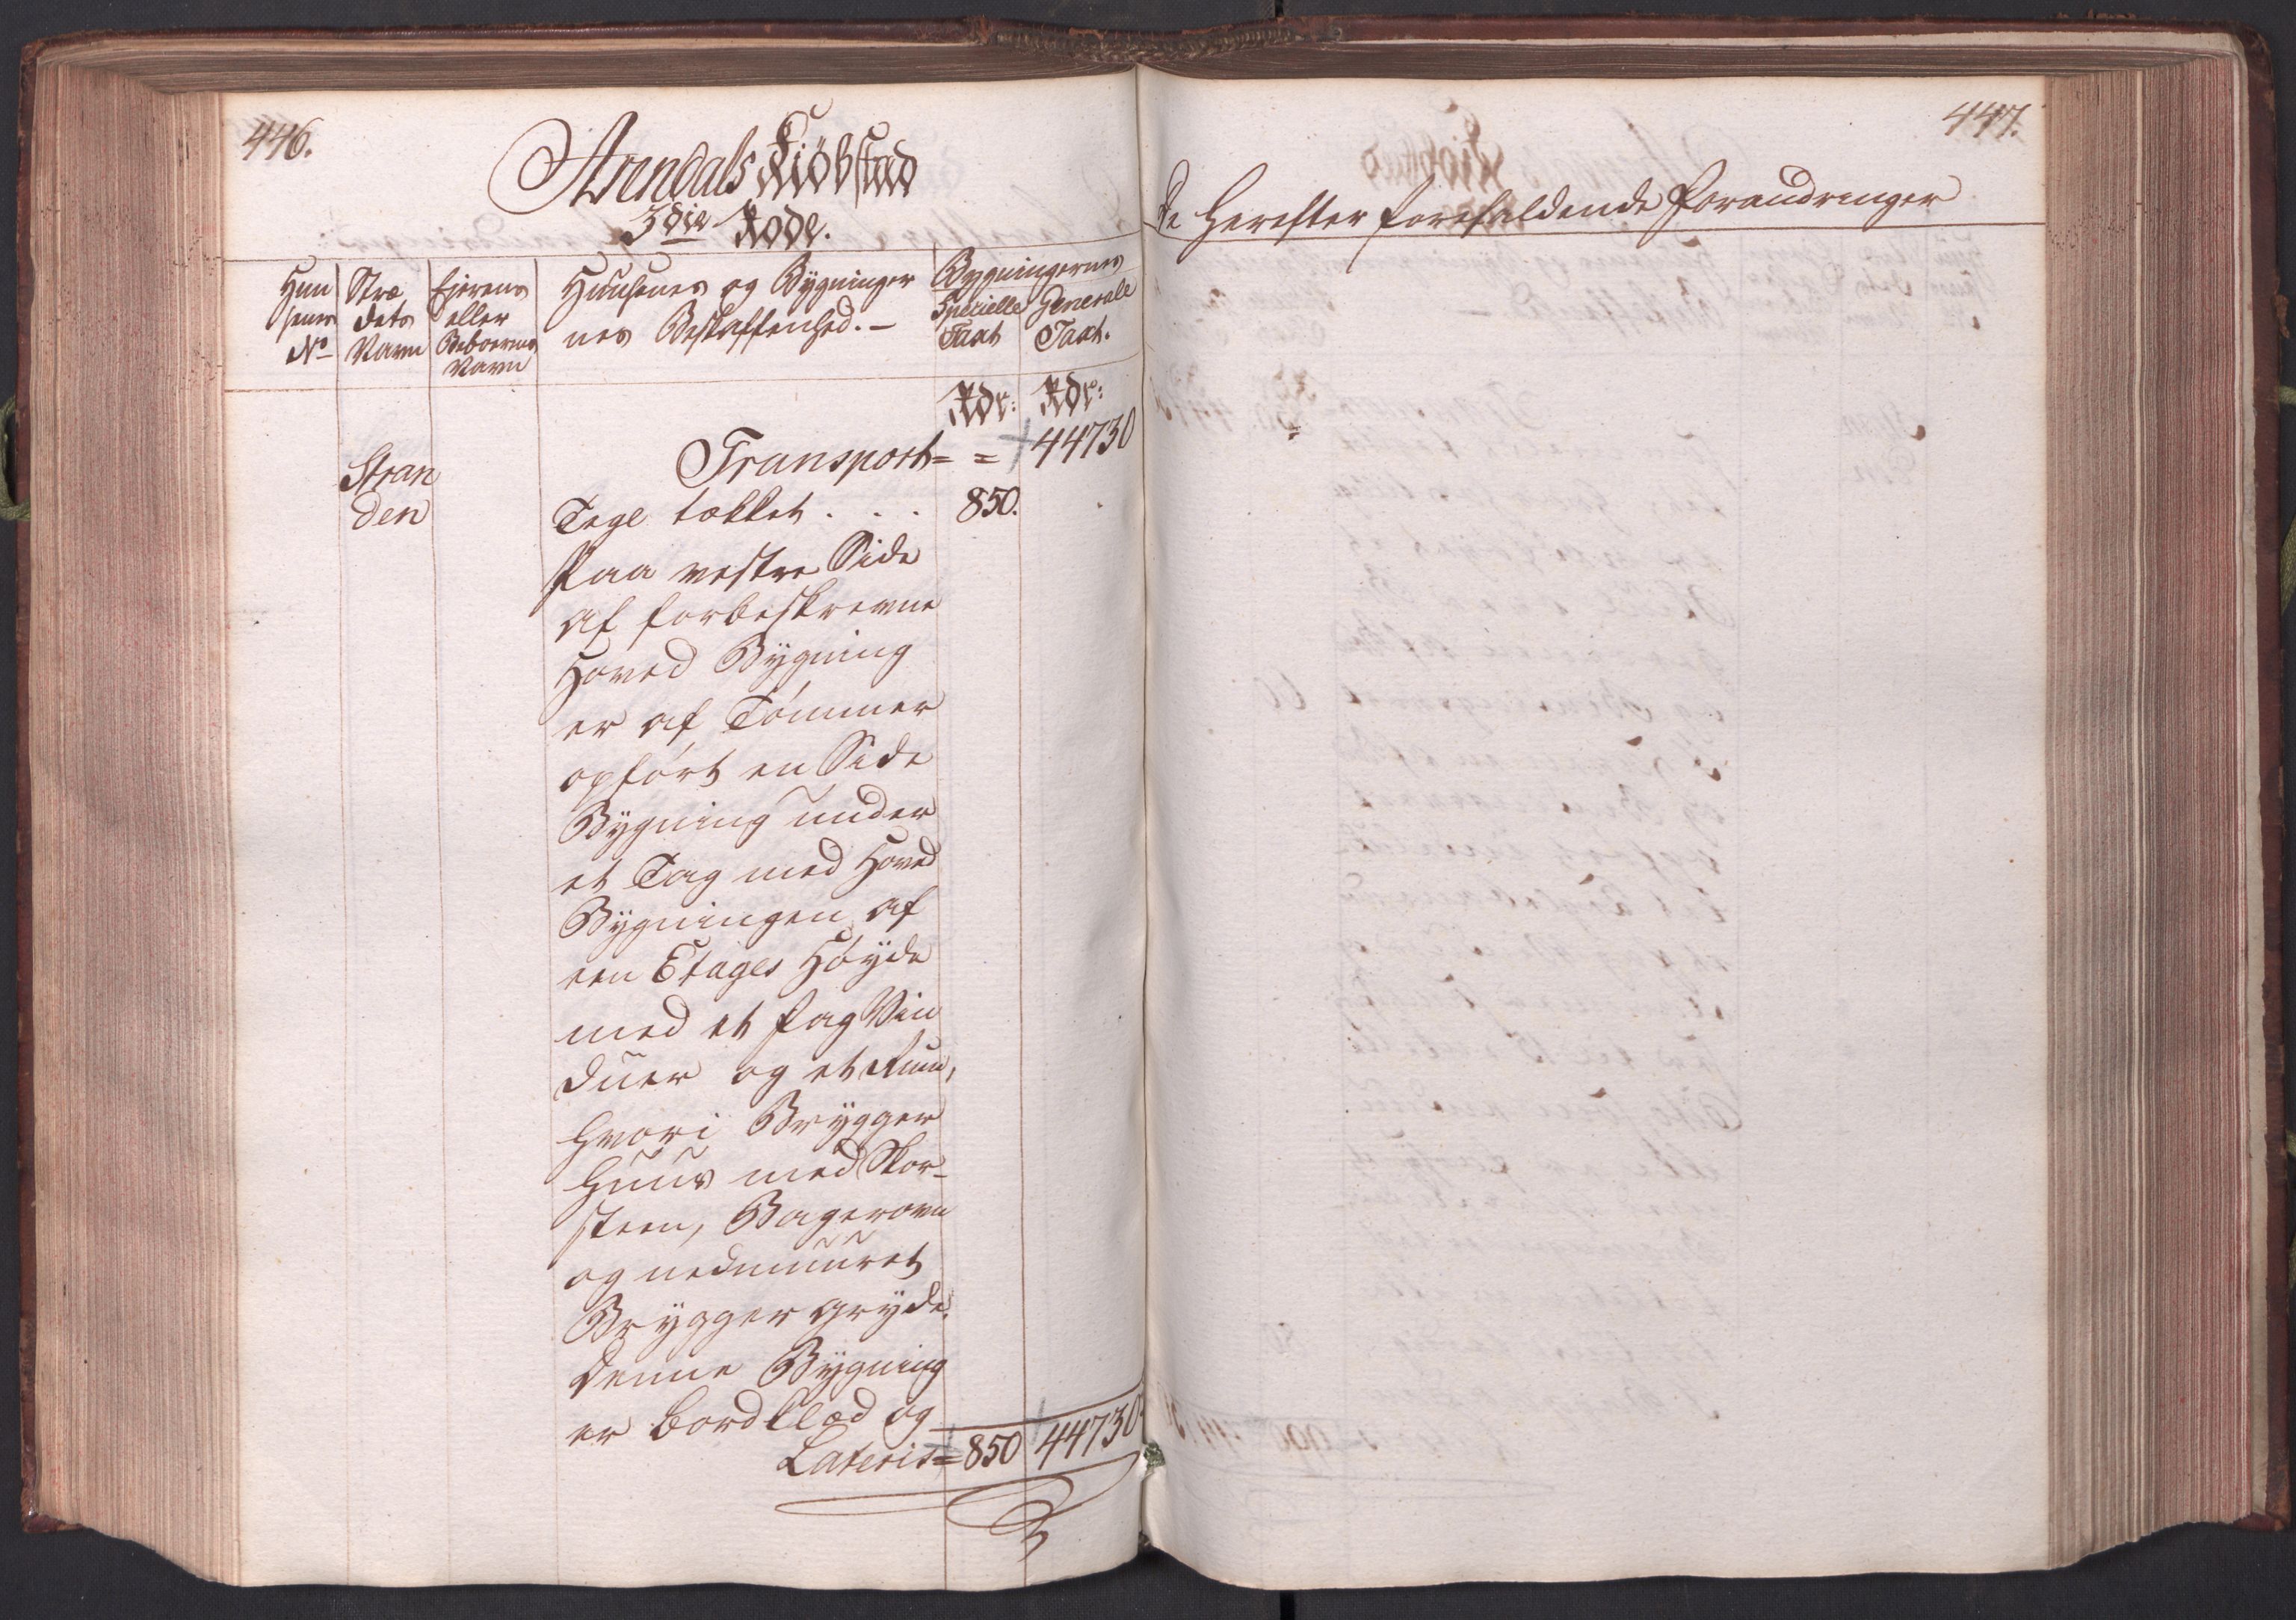 446.
Arendals Kiöbstad
3die Rode.
Huu
senes
No
Stræ
dets
Navn
Ejerens
eller
Beboernes
Navn
Huusenes og Bygninger
nes Beskaffenhed. -
Bygningernes
Specielle
Taxt
Generale
Taxt.
Rdr: Rdr:
Transport = = 44730
Stran
den
Tegl tækket . . . 850.
Paa vestre Side
af forbeskrevne
Hoved Bygning
er af Tømmer
opført en Side
Bygning under
et Tag med Hoved
Bygningen af
een Etages Høyde
med et fag Vin
duer og et Rum,
hvori Brygger
Huus med Skor-
steen, Bagerovn
og nedmuuret
Brygger gryde.
Denne Bygning
er bordklæd og
Lateris = 850 44730
447.
De Herefter forefaldende Forandringer